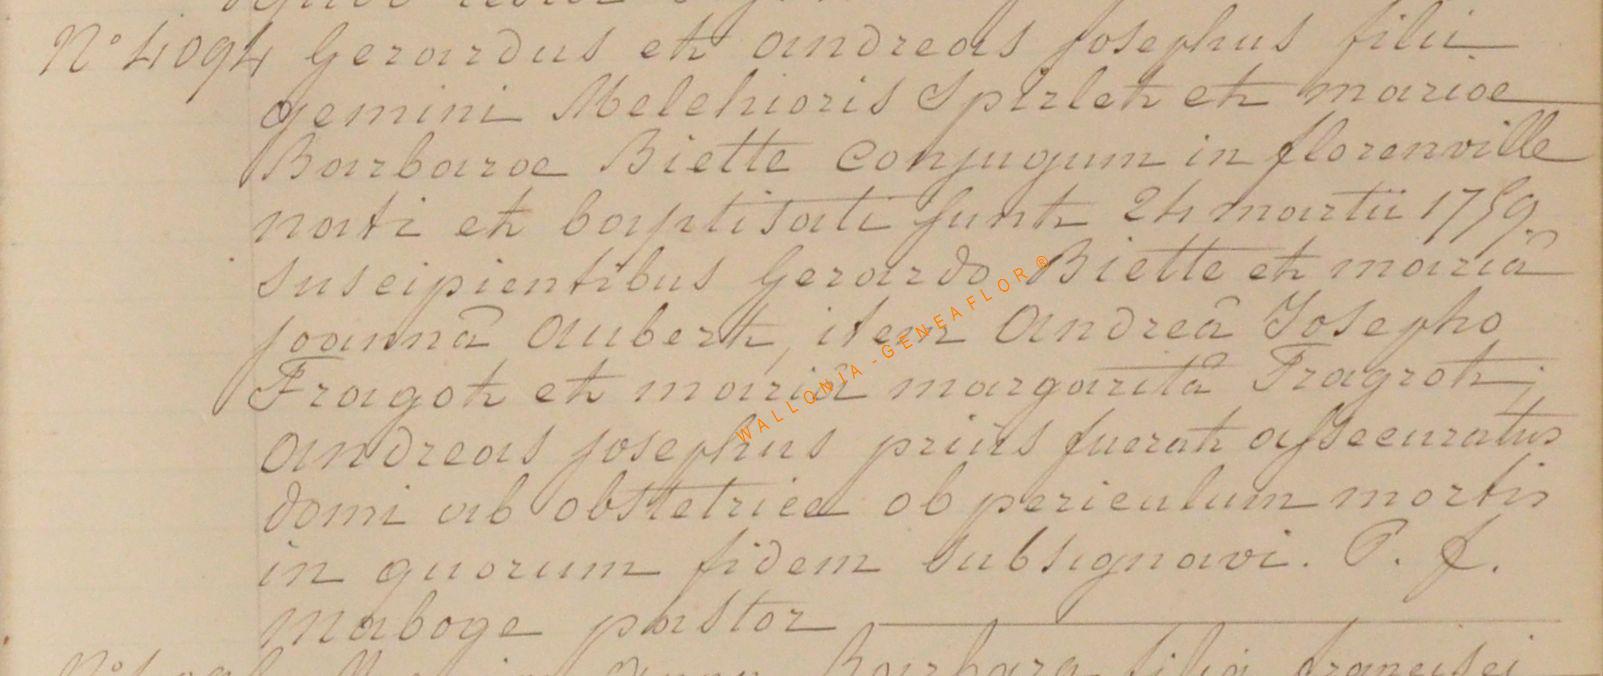 N° 4094 Gerardus et andreas josephus filii
gemini Melchioris Spirlet et mariae
Barbarae Biette conjugum in florenville
nati et baptisati sunt 24 martii 1759.
suscipientibus Gerardo Biette et mariâ
joannâ aubert, item andreâ Josepho
Fragot et mariâ margaritâ Fragrot;
andreas josephus prius fuerat assecuratus
domi ab obstetrice ob periculum mortis
in quorum fidem subsignavi. P. f.
maboge pastor
Barbara filia francisci
WALLONIA-GENEAFLOR®